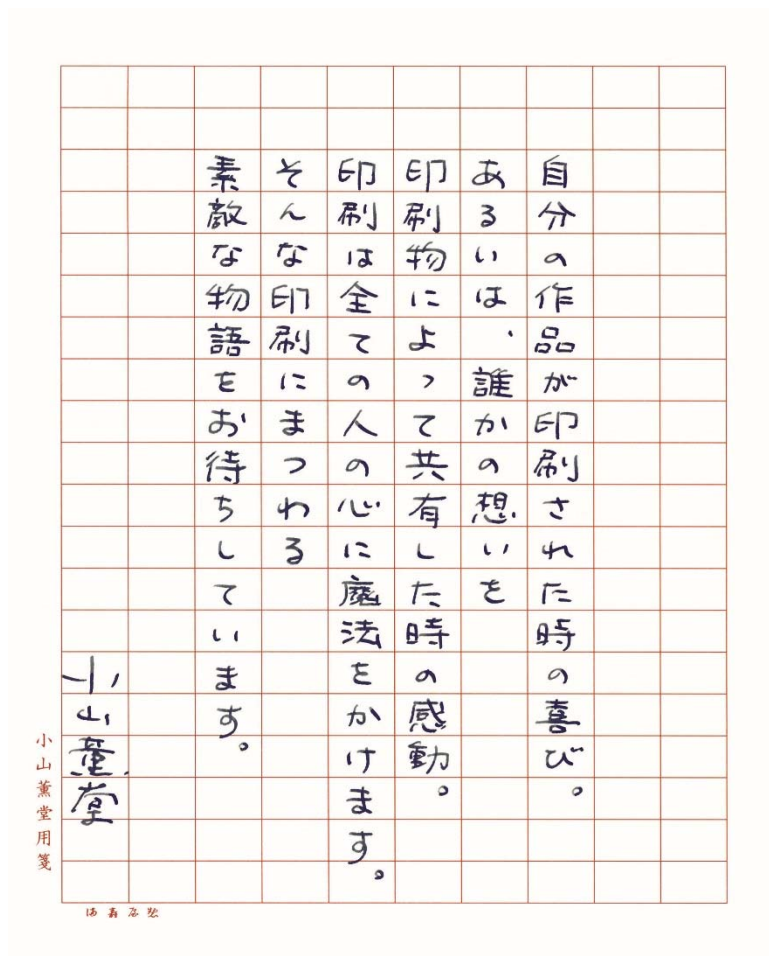 自分の作品が印刷された時の喜び。
あるいは、誰かの想いを
印刷物によって共有した時の感動。
印刷は全ての人の心に魔法をかけます。
そんな印刷にまつわる
素敵な物語をお待ちしています。
小山薫堂
小山薫堂用箋